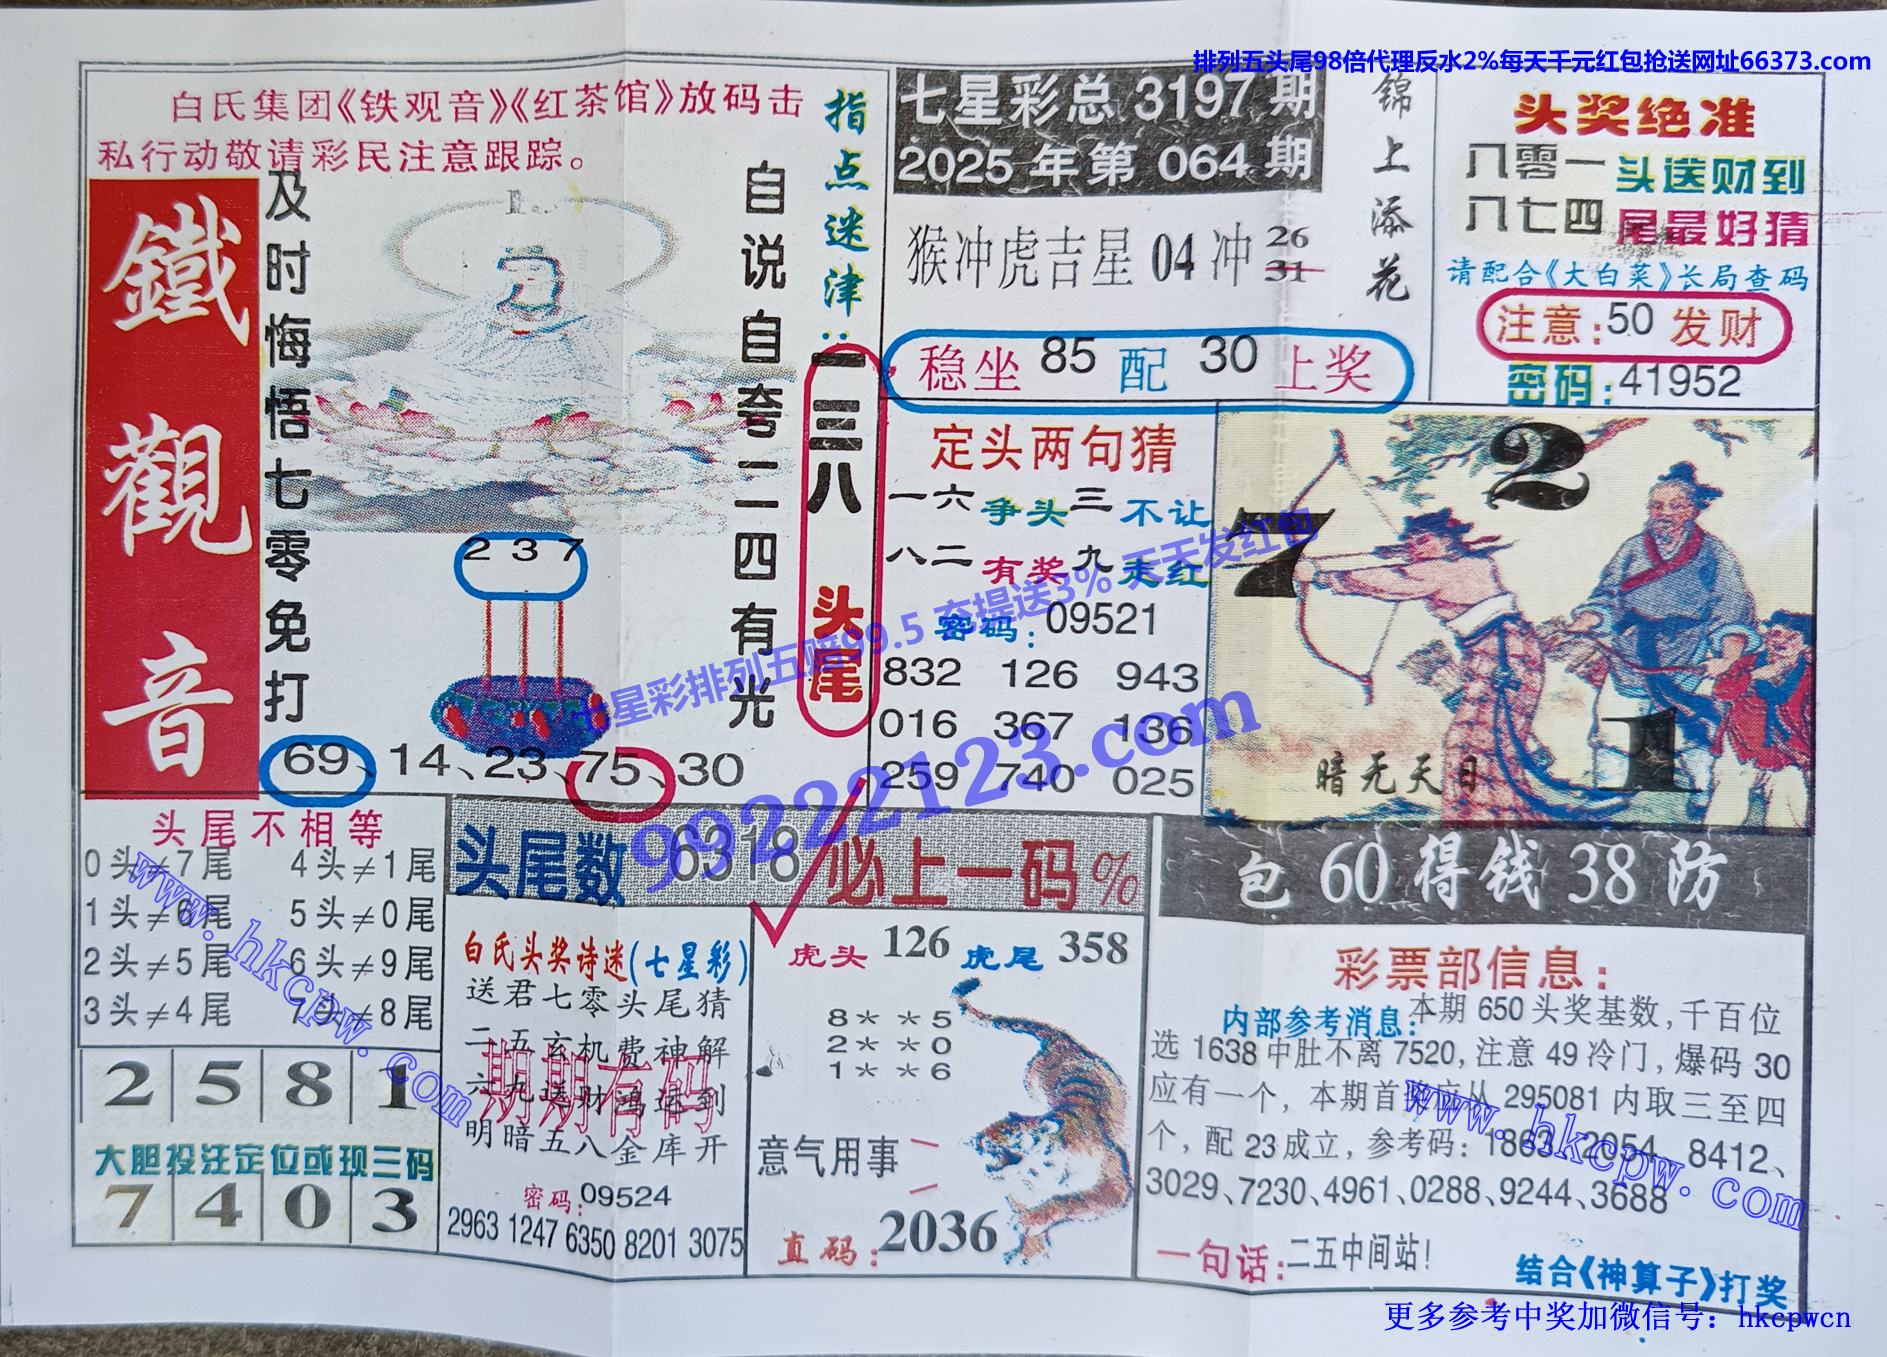 排列五头尾98倍代理反水2%每天千元红包抢送网址66373.com
白氏集团《铁观音》《红茶馆》放码击
私行动敬请彩民注意跟踪。
鐵觀音
及时悔悟七零免打
自说自夸二四有光
指点迷津：一三八 头尾
2 3 7
69、14、23、75、30
七星彩总 3197 期
2025 年第 064 期
猴冲虎吉星 04 冲 26 31
稳坐 85 配 30 上奖
锦上添花
头奖绝准
八零一 头送财到
八七四 尾最好猜
请配合《大白菜》长局查码
注意：50 发财
密码：41952
定头两句猜
一六争头三不让
八二有奖九走红
密码：09521
832 126 943
016 367 136
259 740 025
7 2 1
暗无天日
七星彩排列五赔99.5 充提送3% 天天发红包
99222123.com
头尾不相等
0头≠7尾 4头≠1尾
1头≠6尾 5头≠0尾
2头≠5尾 6头≠9尾
3头≠4尾 7头≠8尾
2 5 8 1
大胆投注定位或现三码
7 4 0 3
头尾数 6318 必上一码%
白氏头奖诗迷(七星彩)
送君七零头尾猜
二五玄机费神解
六九送财鸿运到
明暗五八金库开
期期有码
密码：09524
2963 1247 6350 8201 3075
虎头 126 虎尾 358
8＊ ＊5
2＊ ＊0
1＊ ＊6
意气用事
直码：2036
包 60 得钱 38 防
彩票部信息：
内部参考消息：本期 650 头奖基数，千百位
选 1638 中肚不离 7520，注意 49 冷门，爆码 30
应有一个，本期首奖应从 295081 内取三至四
个，配 23 成立，参考码：1863、2054、8412、
3029、7230、4961、0288、9244、3688
一句话：二五中间站！
结合《神算子》打奖
www.hkcpw.com
www.hkcpw.com
更多参考中奖加微信号：hkcpwcn